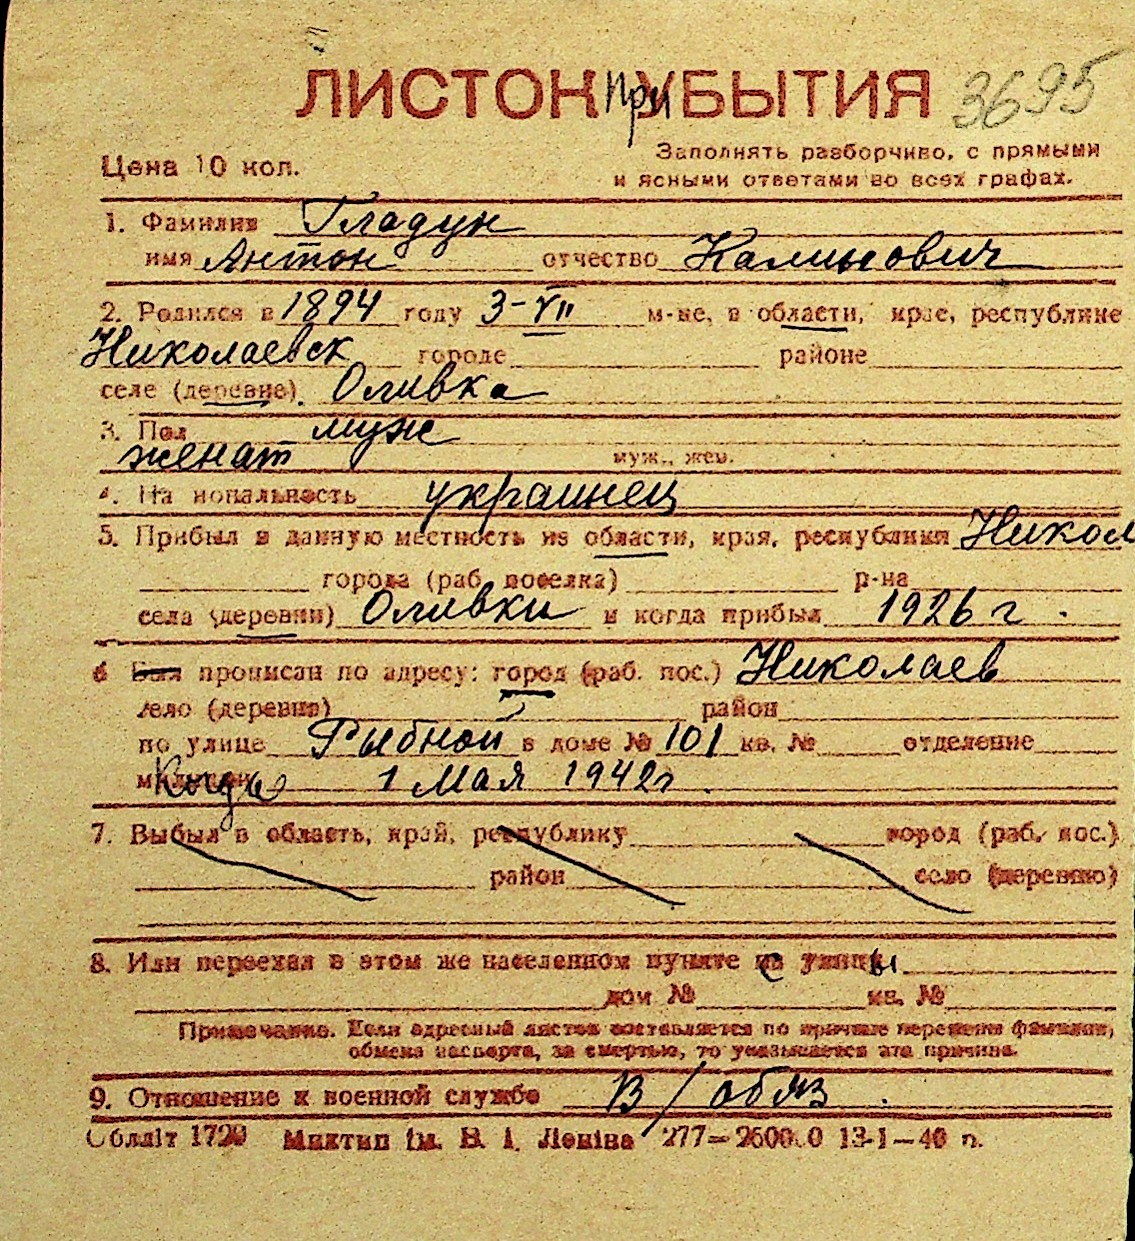 ЛИСТОК При УБЫТИЯ 3695
Цена 10 коп.
Заполнять разборчиво, с прямыми
и ясными ответами во всех графах.
1. Фамилия Гладун
имя Антон отчество Калинович
2. Родился в 1894 году 3-VII м-це, в области, крае, республике
Николаевск городе районе
селе (деревне). Оливка
3. Пол муж
женат муж., жен.
4. На иональность украинец
5. Прибыл в данную местность из области, края, республики Никол
города (раб. поселка) р-на
села (деревни) Оливки и когда прибыл 1926 г.
6 Был прописан по адресу: город (раб. пос.) Николаев
село (деревня) район
по улице Рыбной в доме № 101 кв. № отделение
милиции Когда 1 Мая 1942г.
7. Выбыл в область, край, республику город (раб. пос.)
район село (деревню)
8. Или переехал в этом же населенном пункте с улицы
дом № кв. №
Примечание. Если адресный листок составляется по причине перемены фамилии,
обмена паспорта, за смертью, то указывается эта причина.
9. Отношение к военной службе В/обяз.
Облліт 1729 Миктип ім. В. І. Леніна 277— 13-1—40 п.